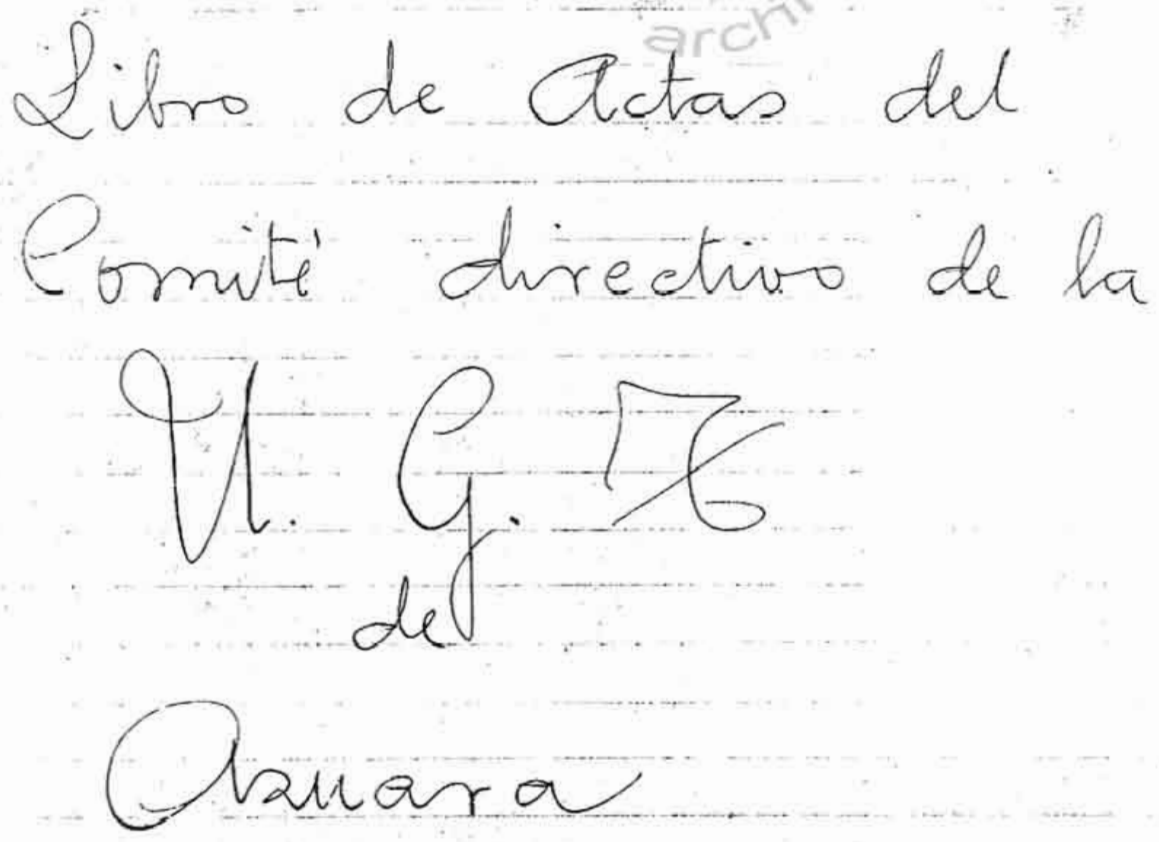 archi
Libro de Actas del
Comité directivo de la
U. G. T
de
Azuara